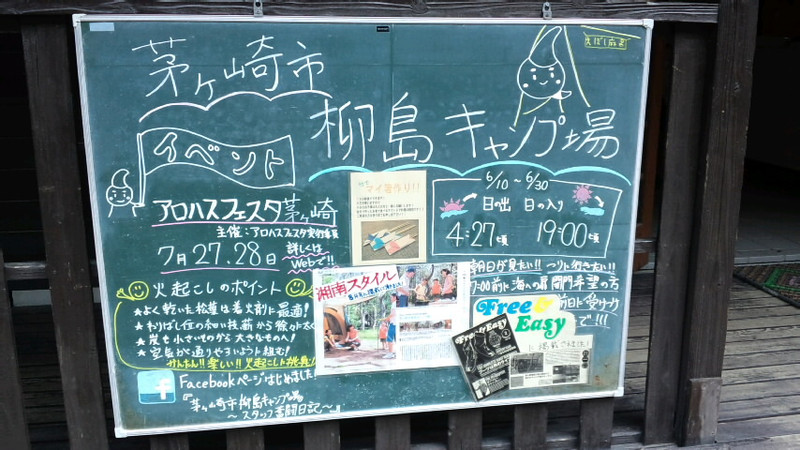 茅ヶ崎市
柳島キャンプ場
えぼし麻呂
イベント
アロハスフェスタ茅ヶ崎
主催：アロハスフェスタ実行委員
7月27.28日
詳しくは
Webで!!
マイ箸作り!!
6/10～6/30
日の出 日の入り
4:27頃 19:00頃
火起こしのポイント
★よく乾いた松葉は着火剤に最適！
★わりばし位の細い枝薪から徐々に太く
★炭も小さいものから大きなものへ！
★空気が通りやすいように組む！
かんたん!! 楽しい!! 火起こし
朝日が見たい!!
7:00前に海への扉開門希望の方
前日に受付
で!!!
湘南スタイル
Free & Easy
Free & Easy
に掲載
Facebookページはじめました！
『茅ヶ崎市柳島キャンプ場
～スタッフ奮闘日記～』